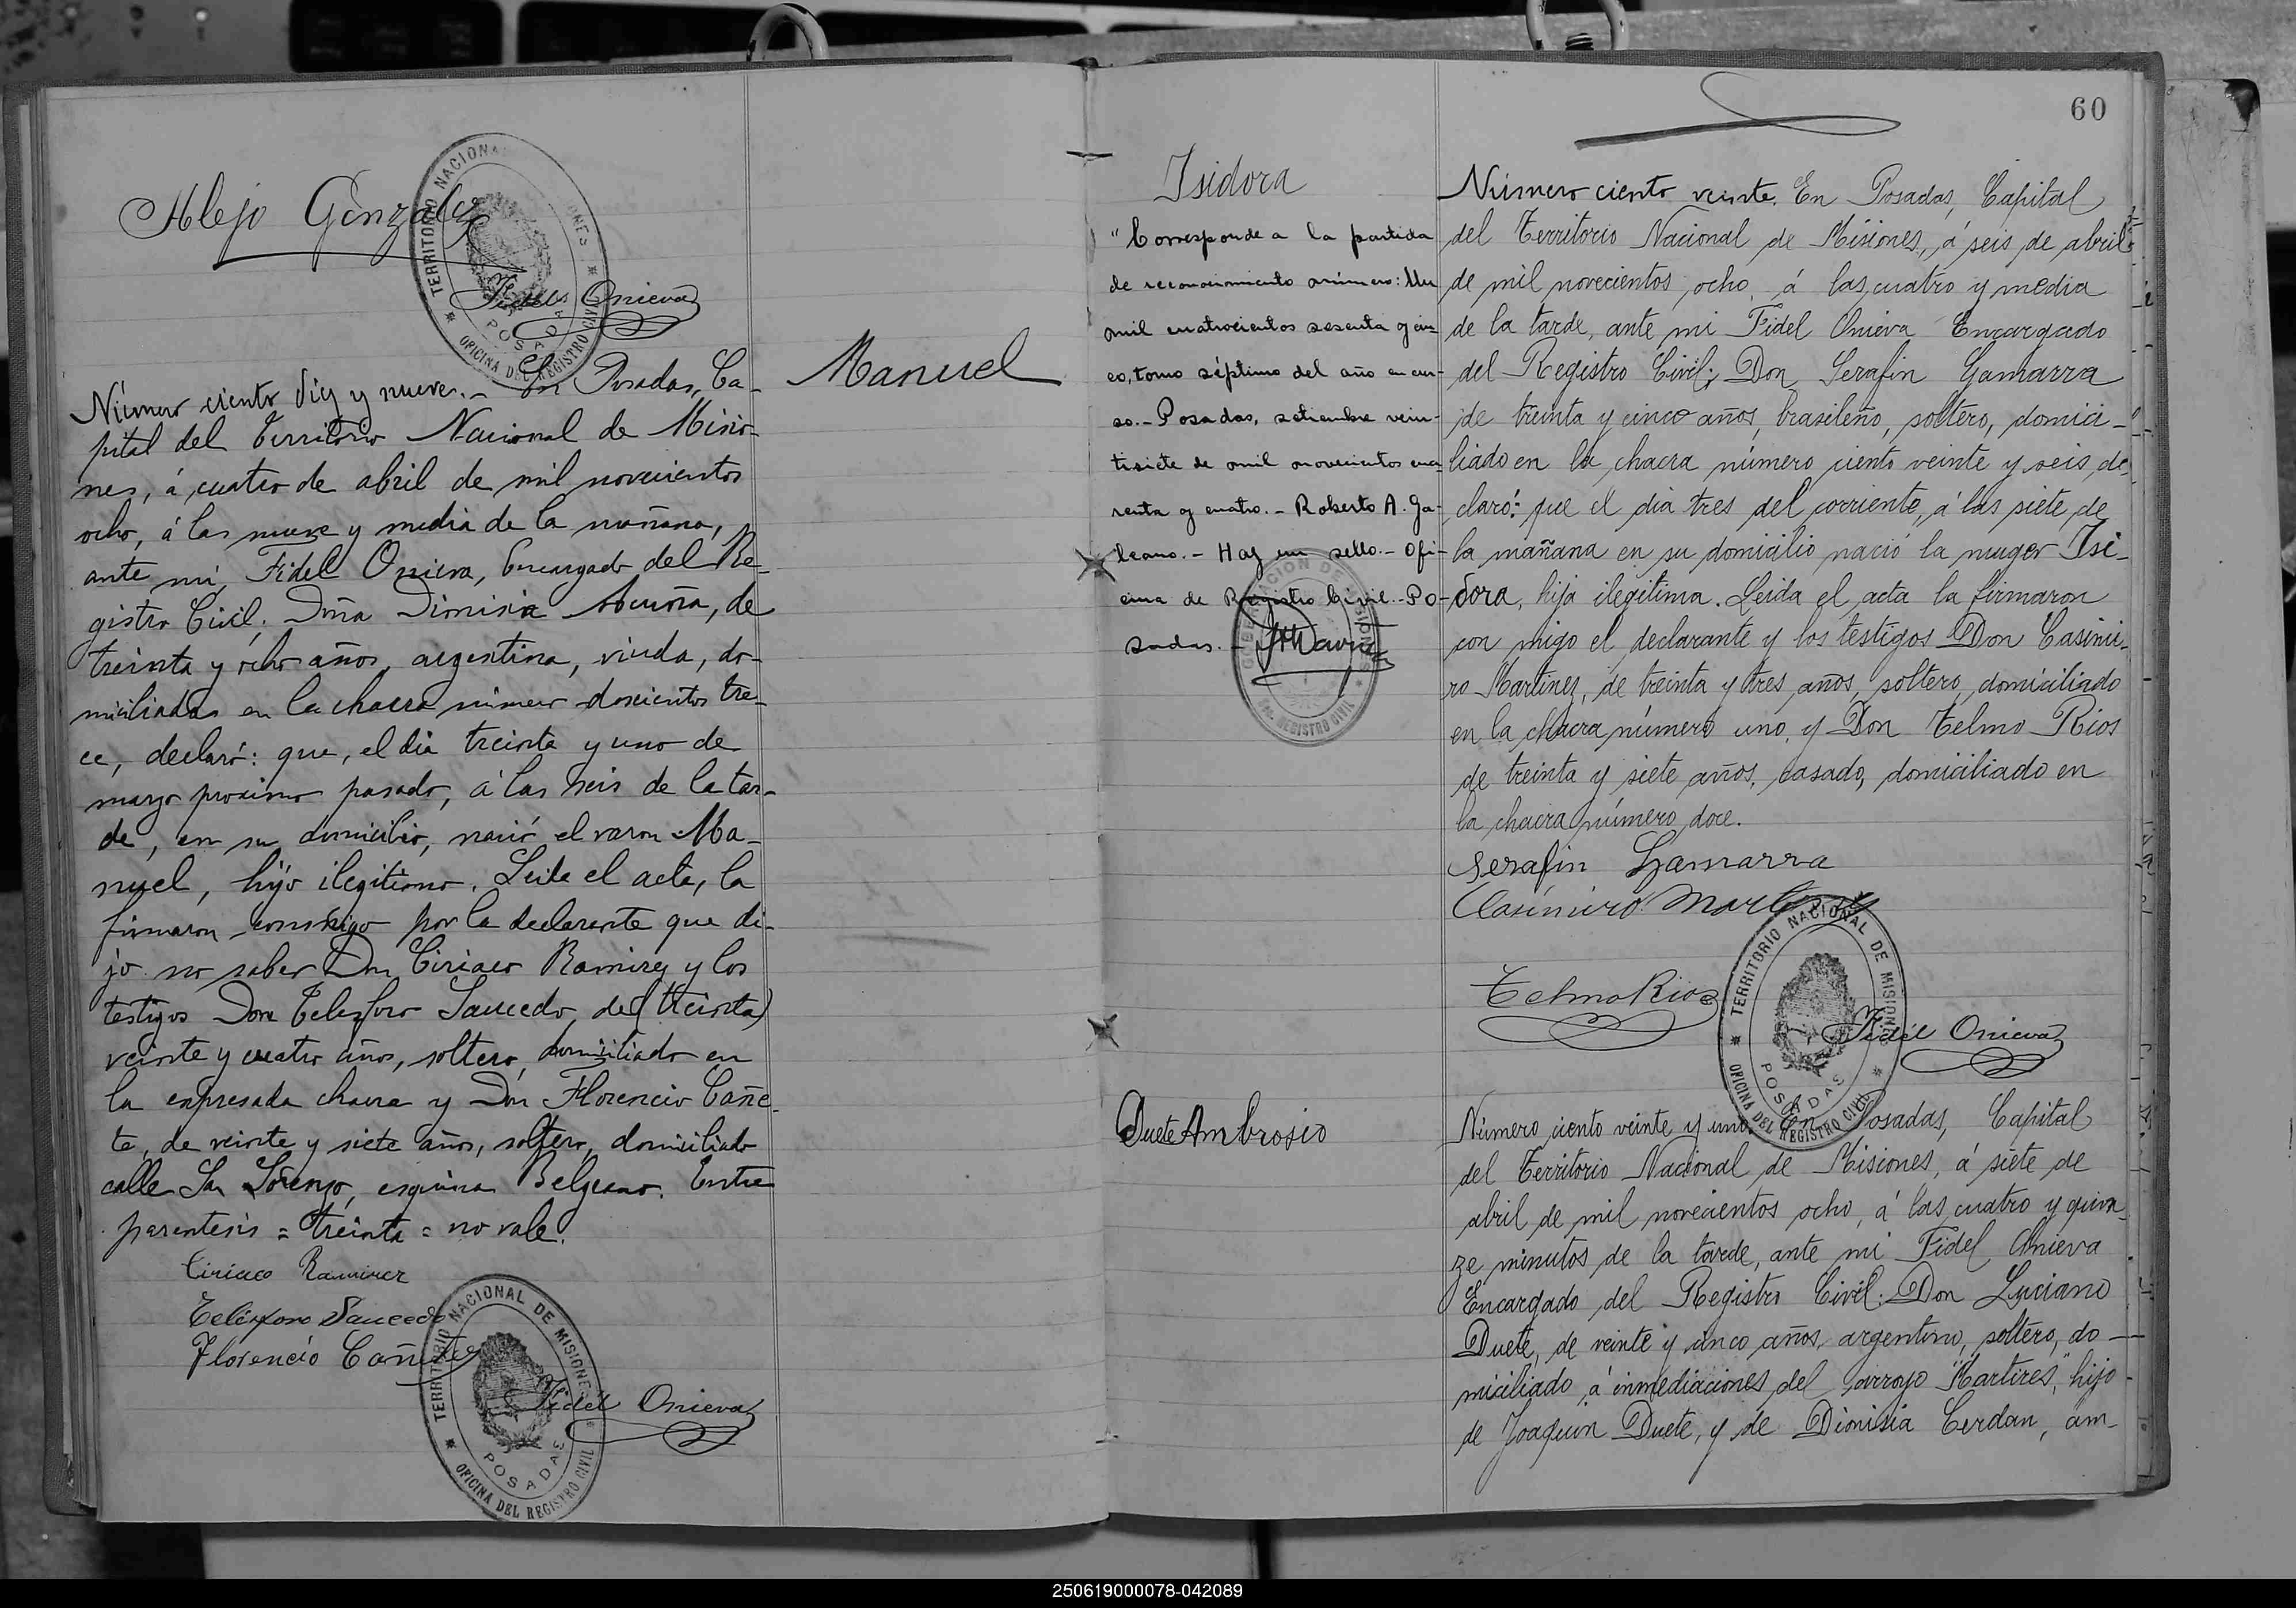 Alejo Gonzalez
TERRITORIO NACIONAL DE MISIONES
POSADAS
OFICINA DEL REGISTRO CIVIL
Fidel Onieva
Manuel
Número ciento diez y nueve.- En Posadas, Ca-
pital del Territorio Nacional de Misio-
nes, á cuatro de abril de mil novecientos
ocho, á las nueve y media de la mañana,
ante mí, Fidel Onieva, Encargado del Re-
gistro Civil; Doña Dionisia Acuña, de
treinta y ocho años, argentina, viuda, do-
miciliada en la chacra número doscientos tre-
ce, declaró: que, el dia treinta y uno de
marzo proximo pasado, á las seis de la tar-
de, en su domicilio, nació el varon Ma-
nuel, hijo ilegitimo. Leida el acta, la
firmaron conmigo por la declarante que di-
jo no saber Don Ciriaco Ramirez y los
testigos Don Telesforo Saucedo, de (treinta)
veinte y cuatro años, soltero, domiciliado en
la expresada chacra y Don Florencio Cañe-
te, de veinte y siete años, soltero, domiciliado
calle San Lorenzo, esquina Belgrano. Entre
parentesis = treinta = no vale.
Ciriaco Ramirez
Telésforo Saucedo
Florencio Cañete
TERRITORIO NACIONAL DE MISIONES
POSADAS
OFICINA DEL REGISTRO CIVIL
Fidel Onieva
60
Isidora
"Corresponde a la partida
de reconocimiento número: Un
mil cuatrocientos sesenta y cin-
co, tomo séptimo del año en cur-
so.- Posadas, setiembre vein-
tisiete de mil novecientos cua-
renta y cuatro.- Roberto A. Ga-
leano.- Hay un sello.- Ofi-
cina de Registro Civil.- Po-
sadas.-
Número ciento veinte. En Posadas, Capital
del Territorio Nacional de Misiones, á seis de abril
de mil novecientos ocho, á las cuatro y media
de la tarde, ante mi Fidel Onieva Encargado
del Registro Civil; Don Serafin Gamarra
de treinta y cinco años, brasileño, soltero, domici-
liado en la chacra número ciento veinte y seis, de-
claró: que el dia tres del corriente, á las siete de
la mañana en su domicilio nació la muger Isi-
dora, hija ilegitima. Leida el acta la firmaron
con migo el declarante y los testigos Don Casimi-
ro Martinez, de treinta y tres años, soltero, domiciliado
en la chacra número uno, y Don Telmo Rios
de treinta y siete años, casado, domiciliado en
la chacra número doce.
Serafin Gamarra
Casimiro Martinez
Telmo Rios
TERRITORIO NACIONAL DE MISIONES
POSADAS
OFICINA DEL REGISTRO CIVIL
Fidel Onieva
Duete Ambrosio
Número ciento veinte y uno. En Posadas, Capital
del Territorio Nacional de Misiones, á siete de
abril de mil novecientos ocho, á las cuatro y quin-
ze minutos de la tarde, ante mi Fidel Onieva
Encargado del Registro Civil: Don Luciano
Duete, de veinte y cinco años, argentino, soltero, do-
miciliado á inmediaciones del arroyo "Martires," hijo
de Joaquin Duete, y de Dionisia Cerdan, am-
250619000078-042089